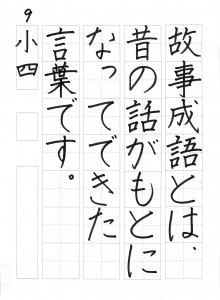 故事成語とは、
昔の話がもとに
なってできた
言葉です。
9
小四